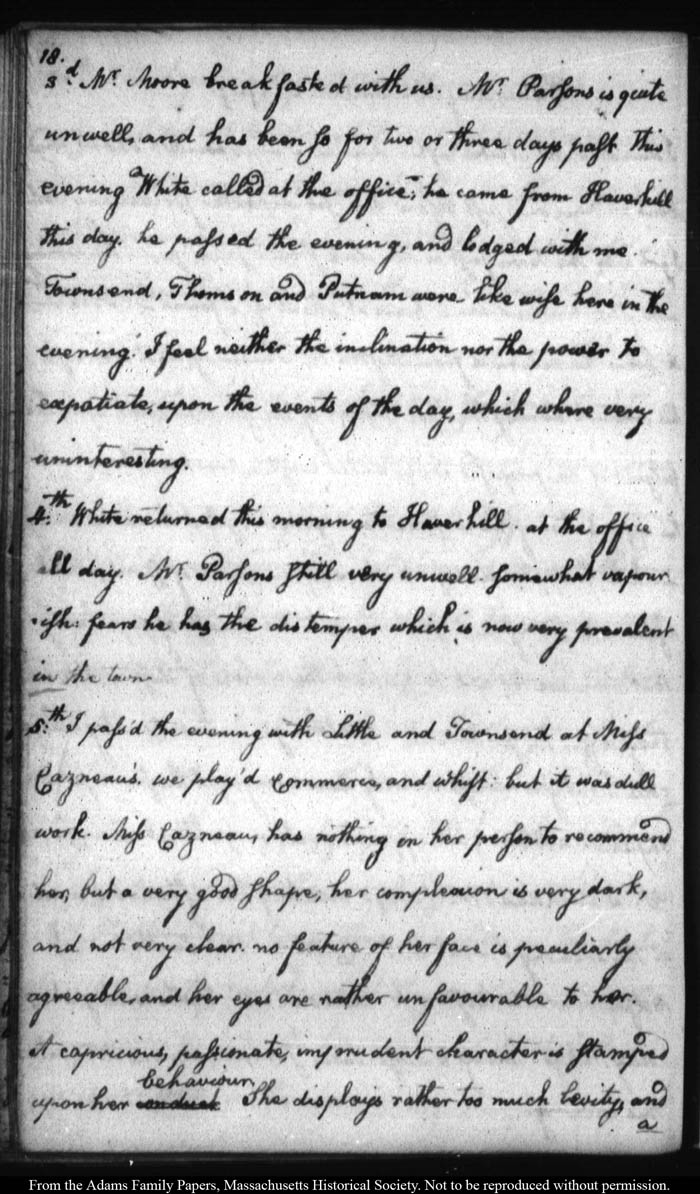 18.
3d. Mr. Moore breakfasted with us. Mr. Parsons is quite
unwell, and has been so for two or three days past this
evening White called at the office, he came from Haverhill
this day. he passed the evening, and lodged with me.
Townsend, Thomson and Putnam were likewise here in the
evening. I feel neither the inclination nor the power to
expatiate, upon the events of the day, which where very
uninteresting.
4th. White returned this morning to Haverhill. at the office
all day. Mr. Parsons still very unwell. somewhat vapour
ish: fears he has the distemper which is now very prevalent
in the town.
5th. I pass'd the evening with Little and Townsend at Miss
Cazneau's. we play'd Commerce, and whist: but it was dull
work. Miss Cazneau, has nothing in her person to recommend
her, but a very good shape, her complexion is very dark,
and not very clear. no feature of her face is peculiarly
agreeable, and her eyes are rather unfavourable to her.
A capricious, passionate, imprudent character is stamped
behaviour.
upon her conduct She displays rather too much levity, and
a
From the Adams Family Papers, Massachusetts Historical Society. Not to be reproduced without permission.